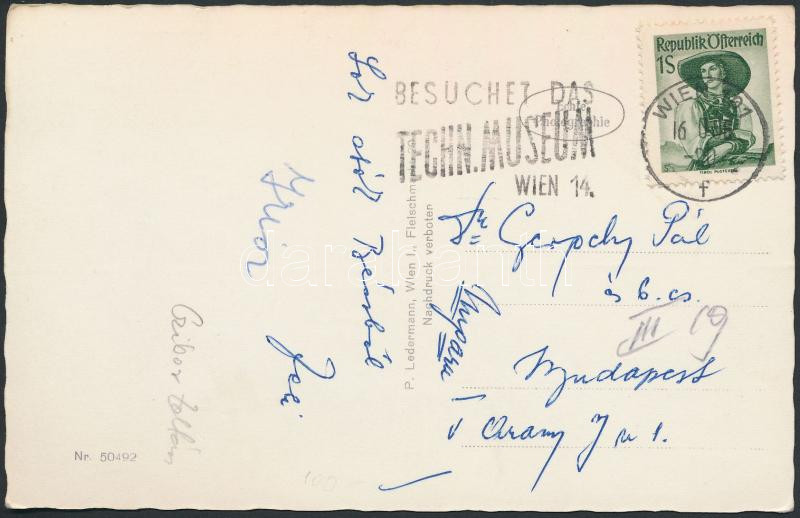 Republik Österreich
1S
BESUCHET DAS
TECHN. MUSEUM
WIEN 14.
Echte
Photographie
WIEN
16
f
Sok csók Bécsből
Czibor Zoltán
P. Ledermann, Wien I., Fleischm
Nachdruck verboten
Dr Gerpely Pál
és b. cs.
Ungarn
III 19
Budapest
V Arany J u 1.
Nr. 50492
100
darabanth